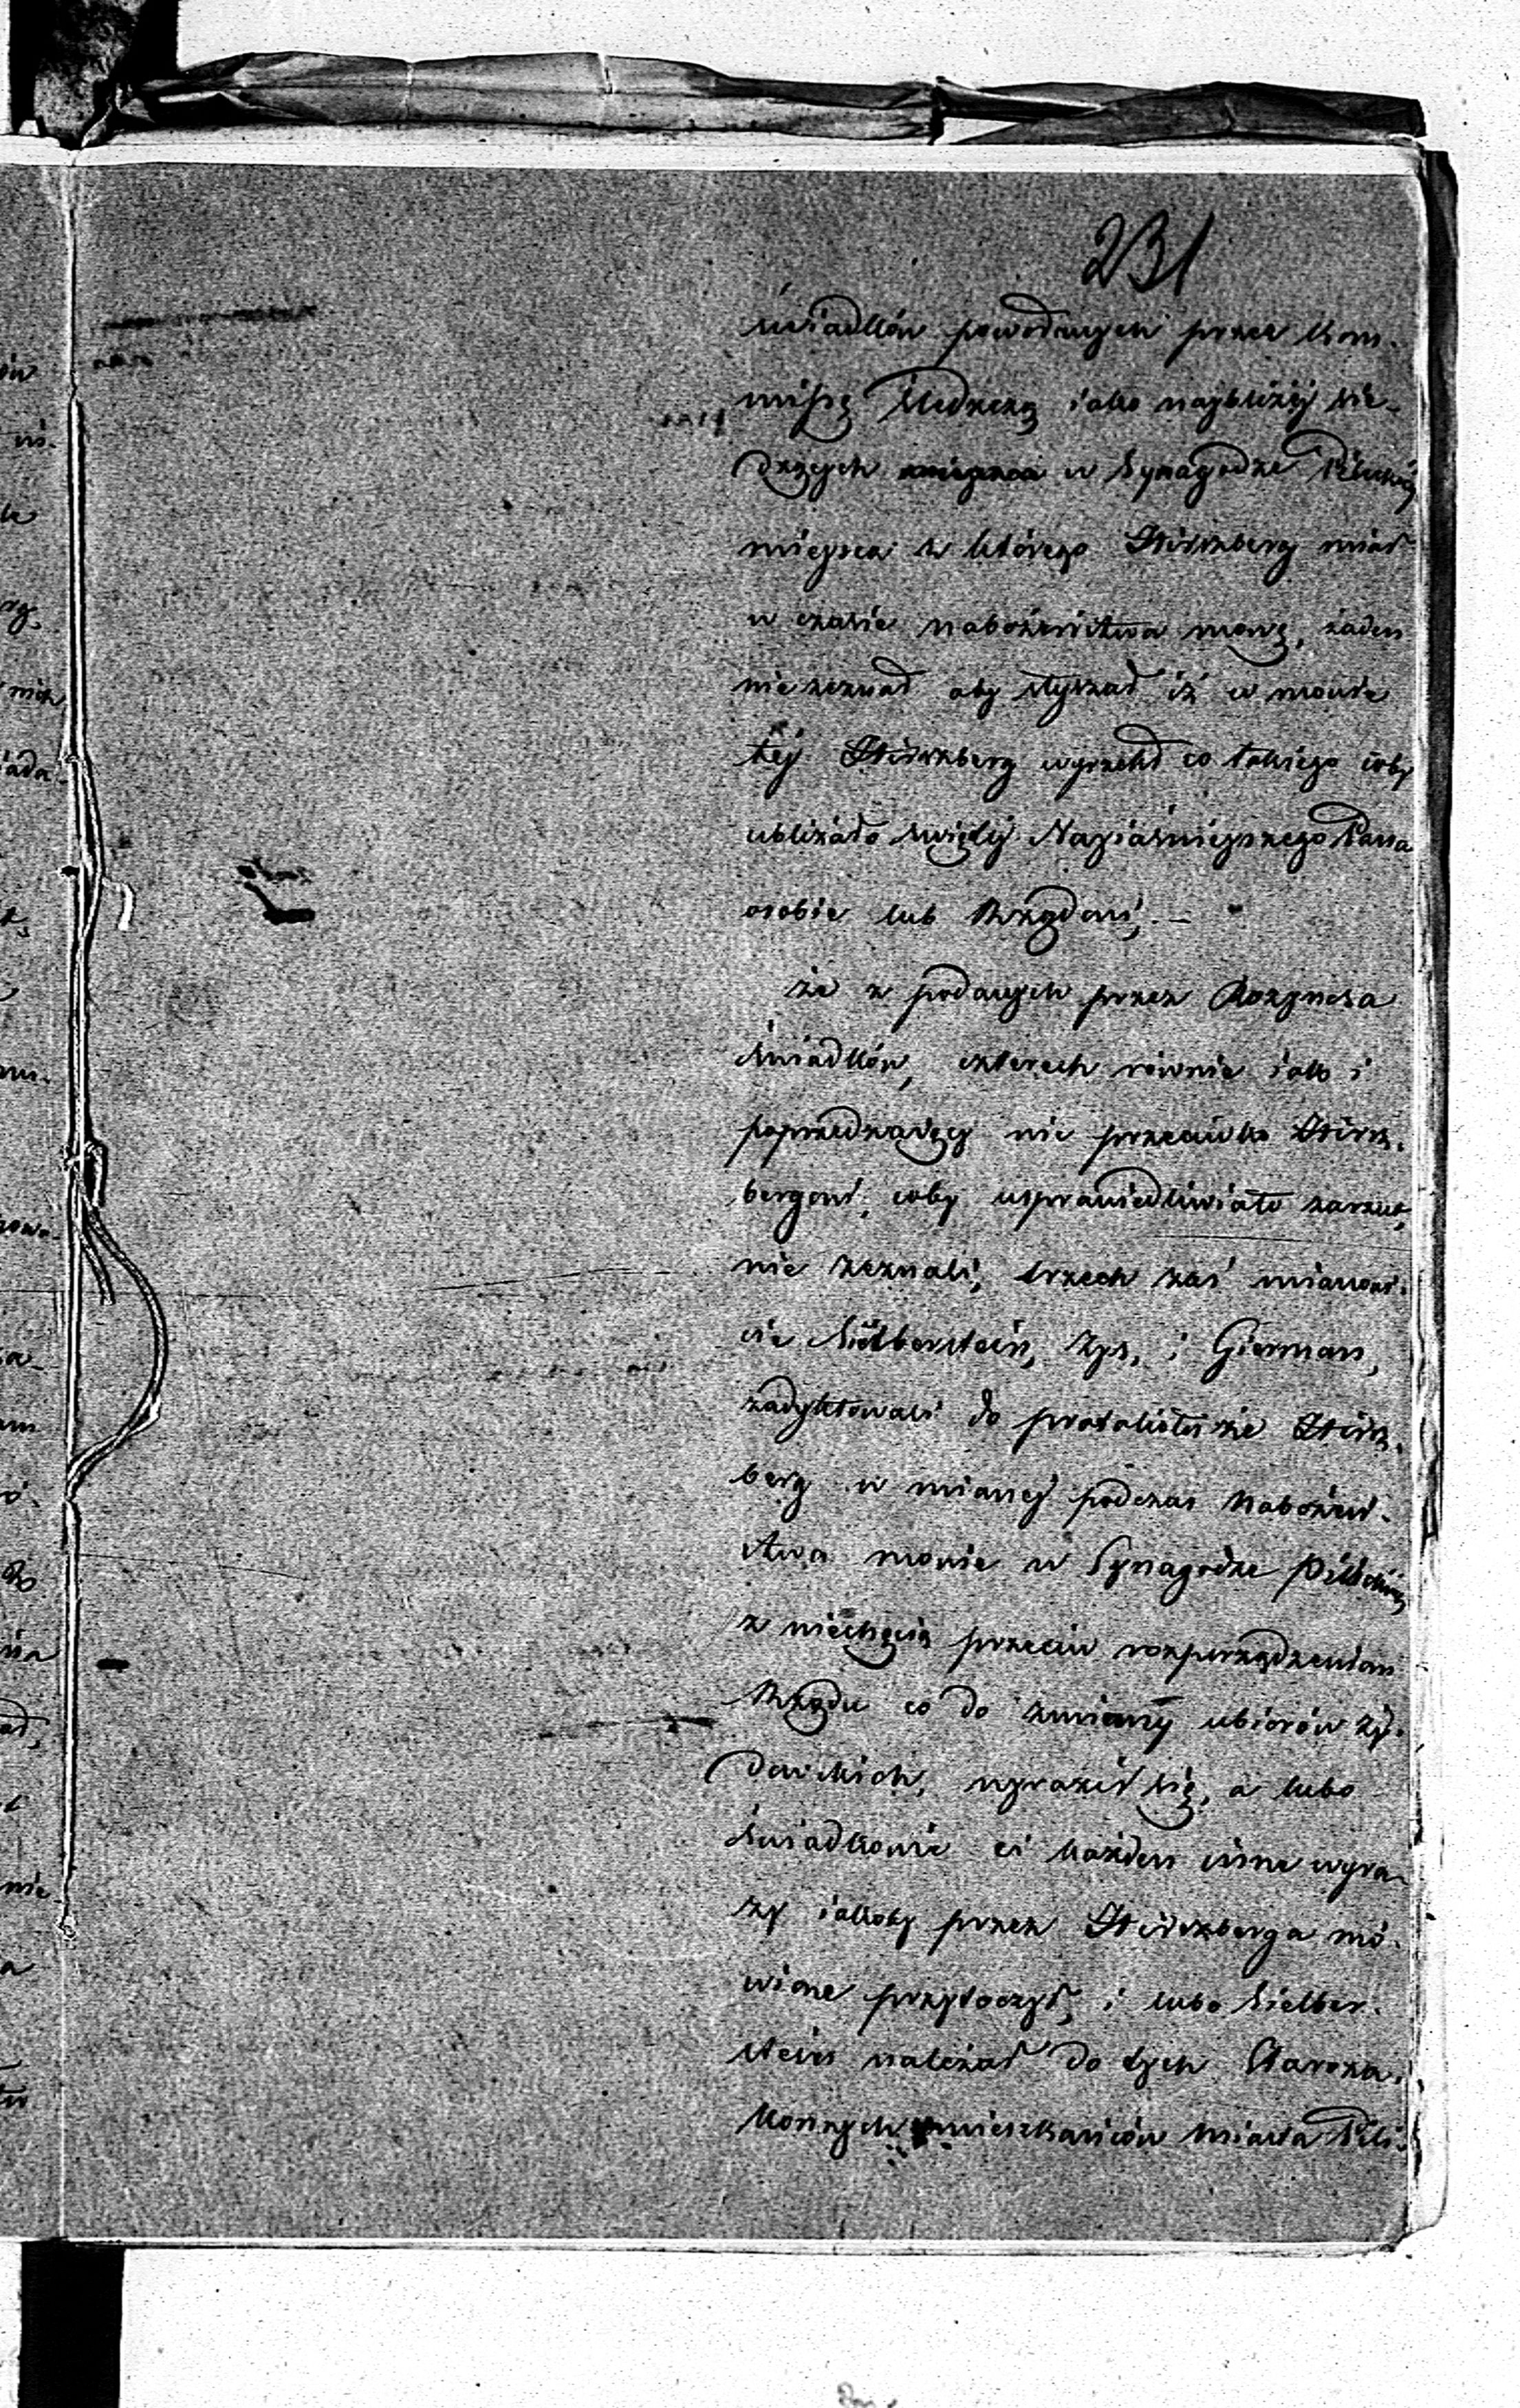 231
świadków powodanych przez Kom-
missę Śledczą iako najbliżéj sie-
dzących w Synagodze Pilickiéj
mieysca z którego Sztirzberg miał
w czasie nabożeństwa mowę, żaden
nie zeznał aby słyszał iż w mowie
téj Sztirzberg wyrzekł co takiego coby
ubliżało świętéj Nayiaśnieyszego Pana
osobie lub Rządowi, –
że z podanych przez Rozynesa
świadków, czterech równie iak i
poprzedzaiący nic przeciwko Sztirz-
bergowi, coby usprawiedliwiało zarzut,
nie zeznali, trzech zaś mianowi-
cie Silberstein, Zys, i Gierman,
zadyktowali do protokołu że Sztirz-
berg w mianéj podczas Nabożeń-
stwa mowie w Synagodze Pilickiéj
z niechęcią przeciw rozporządzeniom
Rządu co do zmiany ubiorów ży-
dowskich, wyraził się, a lubo
świadkowie ci każden inne wyra-
zy iakoby przez Sztirzberga mó-
wione przytoczył, i lubo Sielber-
stein należał do tych Staroza-
konnych mieszkańców miasta Pili-